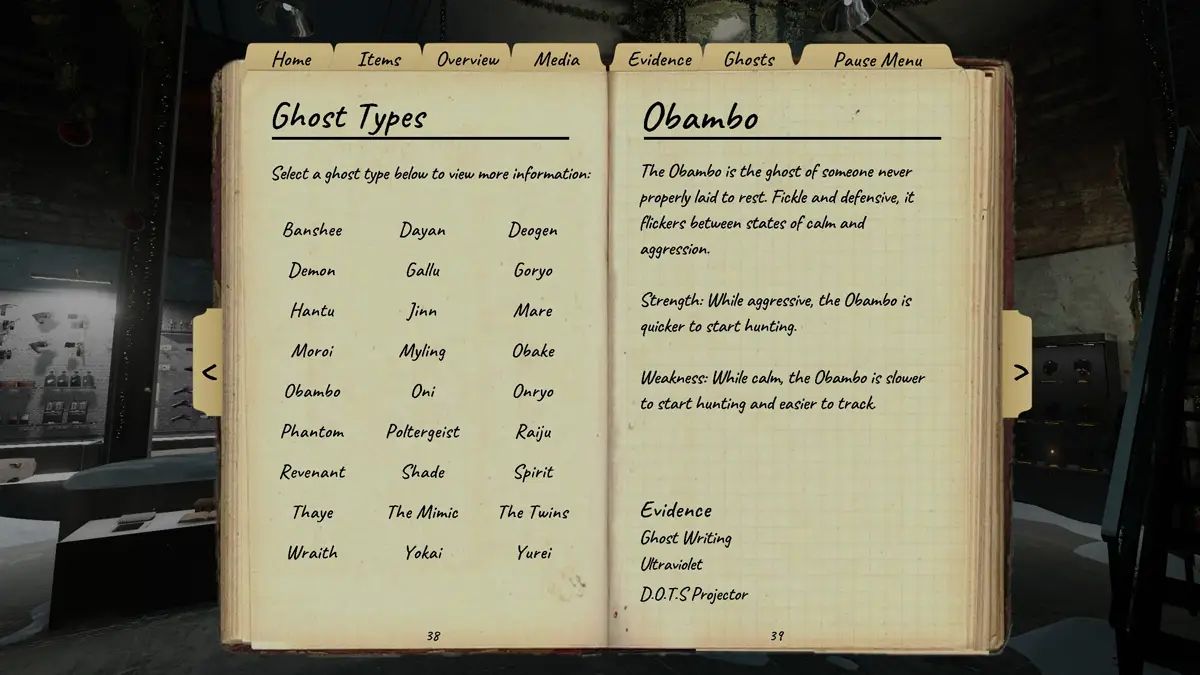 Home Items Overview Media Evidence Ghosts Pause Menu
Ghost Types
Select a ghost type below to view more information:
Banshee Dayan Deogen
Demon Gallu Goryo
Hantu Jinn Mare
Moroi Myling Obake
Obambo Oni Onryo
Phantom Poltergeist Raiju
Revenant Shade Spirit
Thaye The Mimic The Twins
Wraith Yokai Yurei
38
<
Obambo
The Obambo is the ghost of someone never
properly laid to rest. Fickle and defensive, it
flickers between states of calm and
aggression.
Strength: While aggressive, the Obambo is
quicker to start hunting.
Weakness: While calm, the Obambo is slower
to start hunting and easier to track.
Evidence
Ghost Writing
Ultraviolet
D.O.T.S Projector
39
>